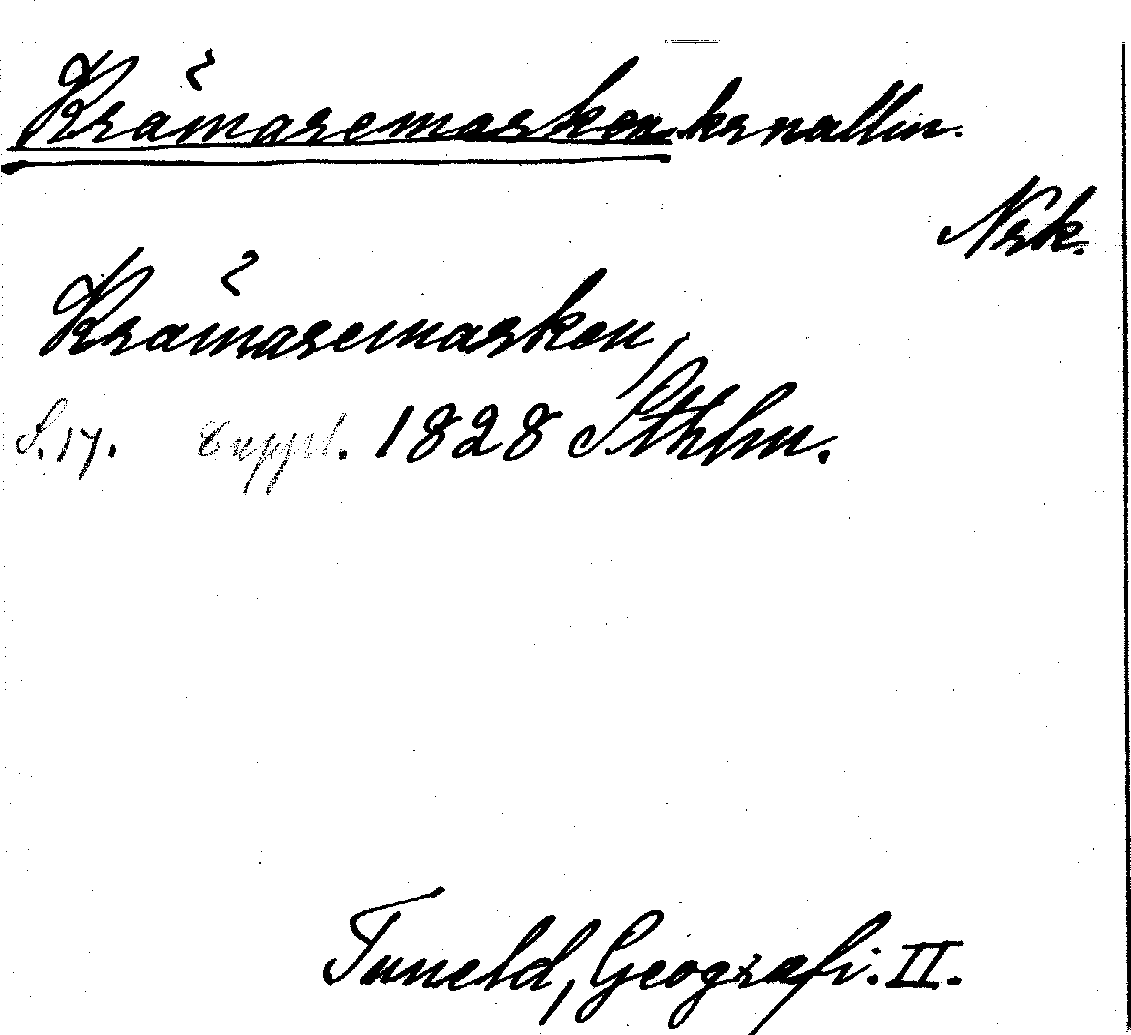 Krämaremarken. kr nallin.
Nrk.
Krämaremarken,
S. 17. Suppl. 1828 Sthlm.
Tuneld, Geografi. II.